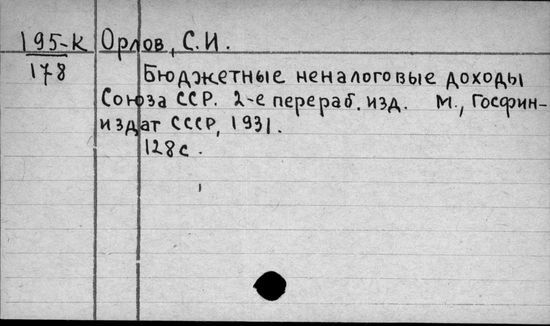 195-К Орлов, С.И.
178
Бюджетные неналоговые доходы
Союза ССР. 2-е перераб. изд. М., Госфин-
издат СССР, 1931.
128с.